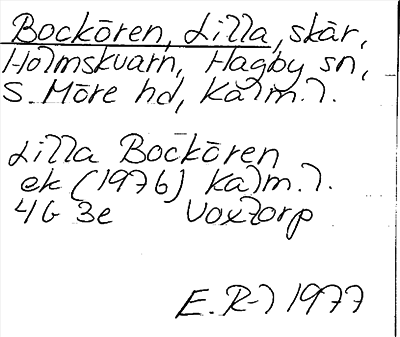 Bockören, Lilla, skär,
Holmskvarn, Hagby sn,
S. Möre hd, Kalm. l.
Lilla Bockören
ek (1976) Kalm. l.
4G 3e Voxtorp
E. R-l 1977